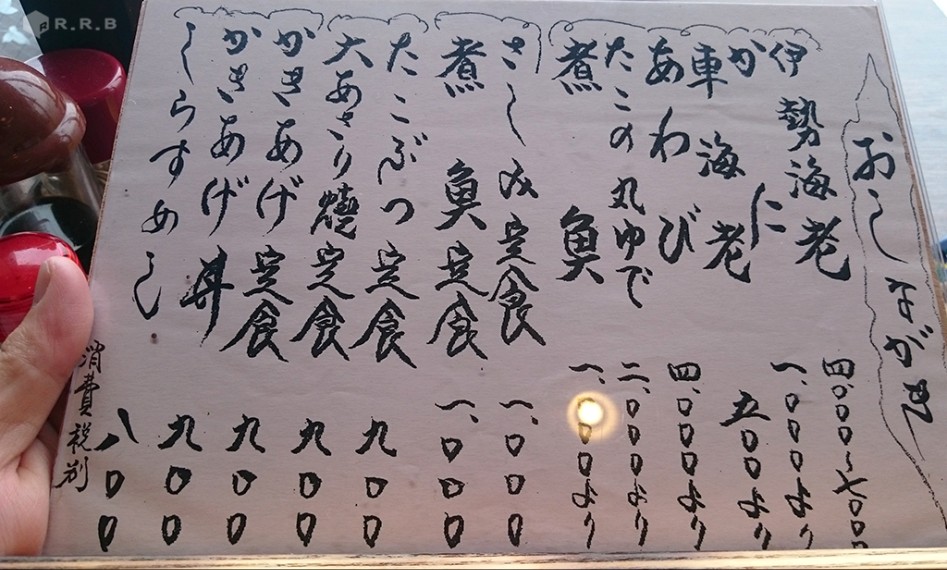 R.R.B
おしながき
伊勢海老 四、〇〇〇〜七〇〇〇
かに 一、〇〇〇より
車海老 五〇〇より
あわび 四、〇〇〇より
たこの丸ゆで 二、〇〇〇より
煮魚 一、〇〇〇より
さしみ定食 一、〇〇〇
煮魚定食 一、〇〇〇
たこぶつ定食 九〇〇
大あさり燒定食 九〇〇
かきあげ定食 九〇〇
かきあげ丼 九〇〇
しらすめし 八〇〇
消費税別